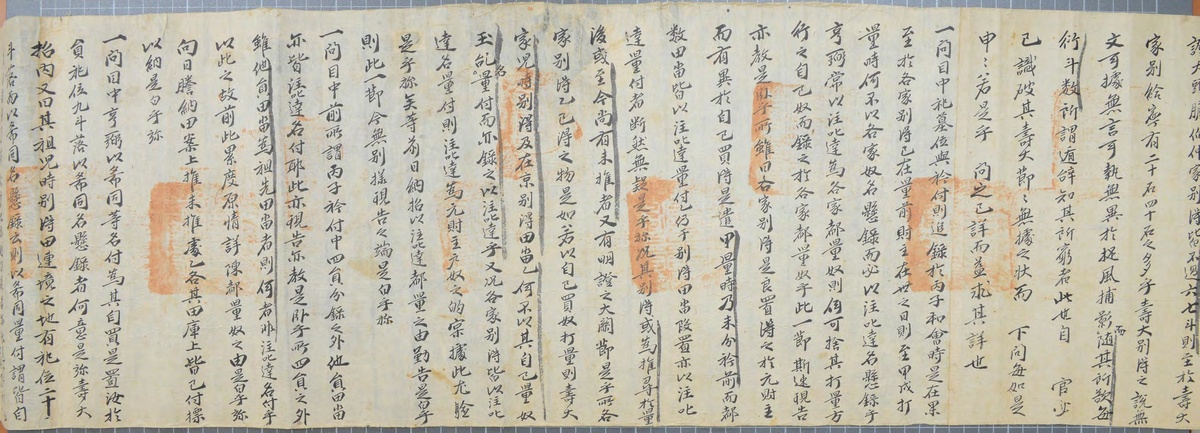 別得皆不過六七斗則至於壽大
家別給率有二十石四十石之多乎壽大別得之說無
文可據無言可執無異於捉風捕影而隨其所欲每
衍斗數所謂遁辭知其所窮者此也自 官少
已識破其壽大節〻無據之狀而 下問每如是
申〻若是乎 問之已詳而益求其詳也
一問目中祀墓位與衿付則追錄於丙子和會時是在果
至於各家別得已在量前財主在世之日則至甲戌打
量時何不以各家奴名懸錄而必以注叱達名懸錄乎
亨弼常以注叱達為各家都量奴則何可捨其打量方
行之自己奴而錄之於各家都量奴乎此一節斯速現告
亦敎是臥乎所雖曰各家別得是良置得之於元財主
而有異於自己買得是遣甲量時乃未分衿前而都
數田畓皆以注叱達量付已仍于別得田畓段置亦以注叱
達量付者斷然無疑是乎旀況其別得或為推尋打量
後或至今尚有未推者又有明證之大關節是乎所各
家別得已已得之物是如若以自己買奴打量則壽大
家兒時別得及在京別得田畓乙何不以其自己量奴
玉乞名量付而亦錄之以注叱達乎又況各家別得皆以注叱
達名量付則注叱達為元財主戶奴之的實據此尤驗
是乎旀矣等前日納招以注叱達都量之由勤告是白乎
則此一節今無別樣現告之端是白乎旀
一問目中前所謂丙子衿付中四負分錄之外他負田畓
亦皆注叱達名付耶此亦現告亦敎是臥乎所四負之外
雖他負田畓為祖先田畓者則何者非注叱達名付乎
以此之故前此累度原情詳陳都量奴之由是白乎旀
向日謄納田案上推未推處乙各其田庫上皆已付標
以納是白乎旀
一問目中亨弼以希同等名付為其自買是置汝於
負祀位九斗落以希同名懸錄者何意是旀壽大
招內又曰其祖兒時別得田連境之地有祀位二十
斗落而以希同名懸錄云則以希同量付謂皆自